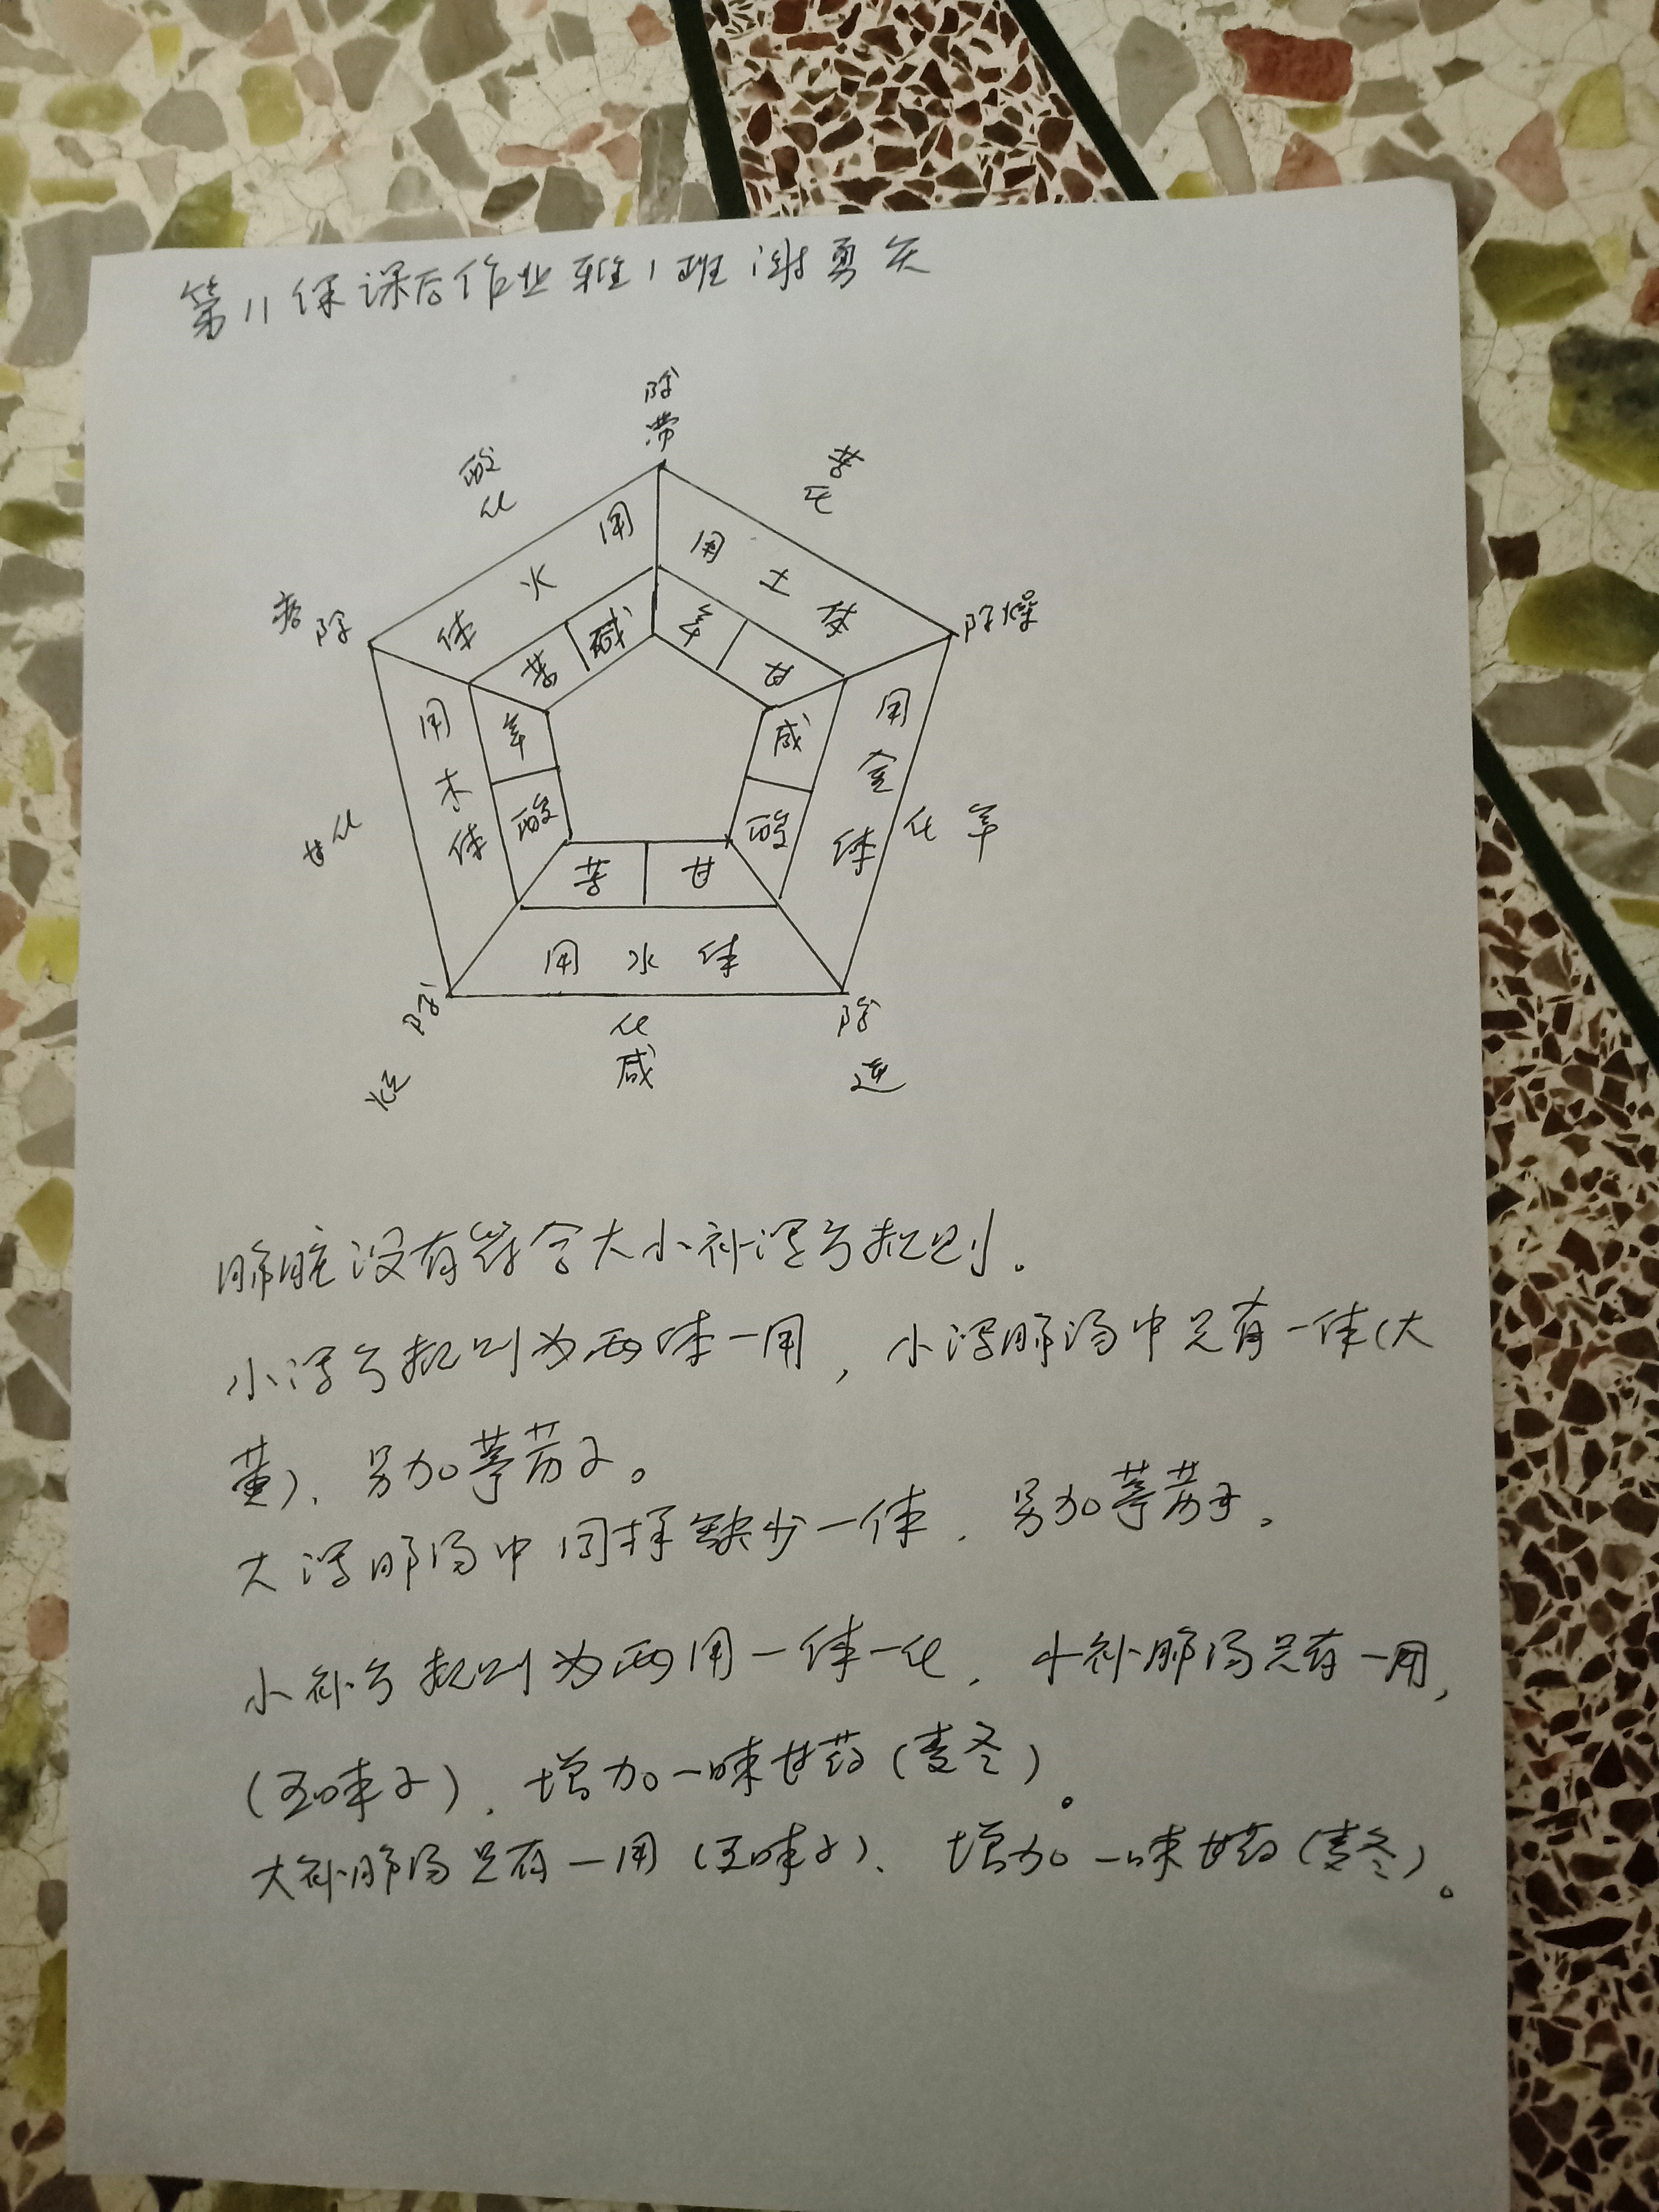 第11课课后作业 雅1班 谢勇矢
除滞
酸化
苦化
用
用
火
土
体
体
除痞
除燥
咸
辛
苦
甘
用
辛
咸
用
木
金
体
酸
酸
体
甘化
化辛
苦
甘
用 水 体
除
除
化
咸
逆
肺脏没有符合大小补泻方规则。
小泻方规则为两体一用，小泻肺汤中只有一体(大
黄)、另加葶苈子。
大泻肺汤中同样缺少一体，另加葶苈子。
小补方规则为两用一体一化，小补肺汤只有一用，
(五味子)、增加一味甘药(麦冬)。
大补肺汤只有一用(五味子)、增加一味甘药(麦冬)。